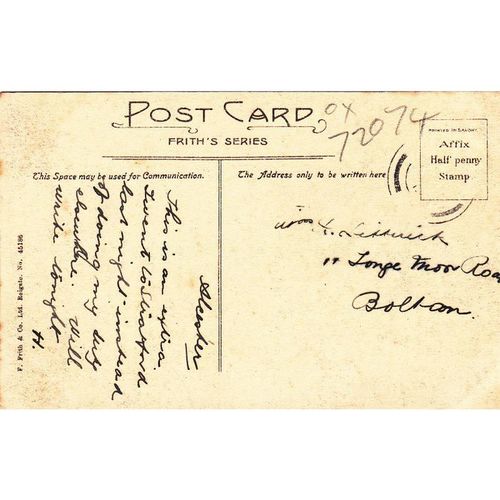 POST CARD
FRITH'S SERIES
OX
72074
PRINTED IN SAXONY.
Affix
Half penny
Stamp.
This Space may be used for Communication.
The Address only to be written here
Alcester
This is an extra.
I went to Stratford
last night instead
of doing my duty
elsewhere. Will
write tonight
H.
11 Longe Moor Road
Bolton.
F. Frith & Co. Ltd. Reigate. No. 45186